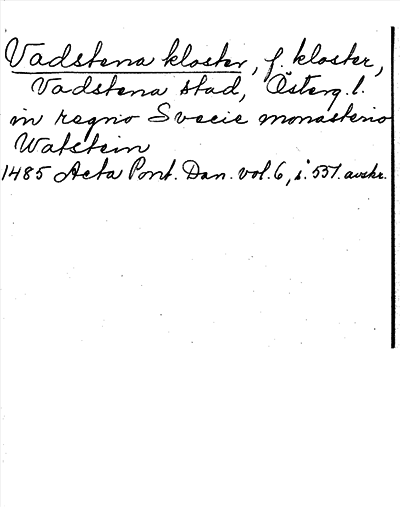 Vadstena kloster, f. kloster,
Vadstena stad, Österg.l.
in regno Svecie monasterio
Watstein
1485 Acta Pont. Dan. vol. 6, s. 551. avskr.